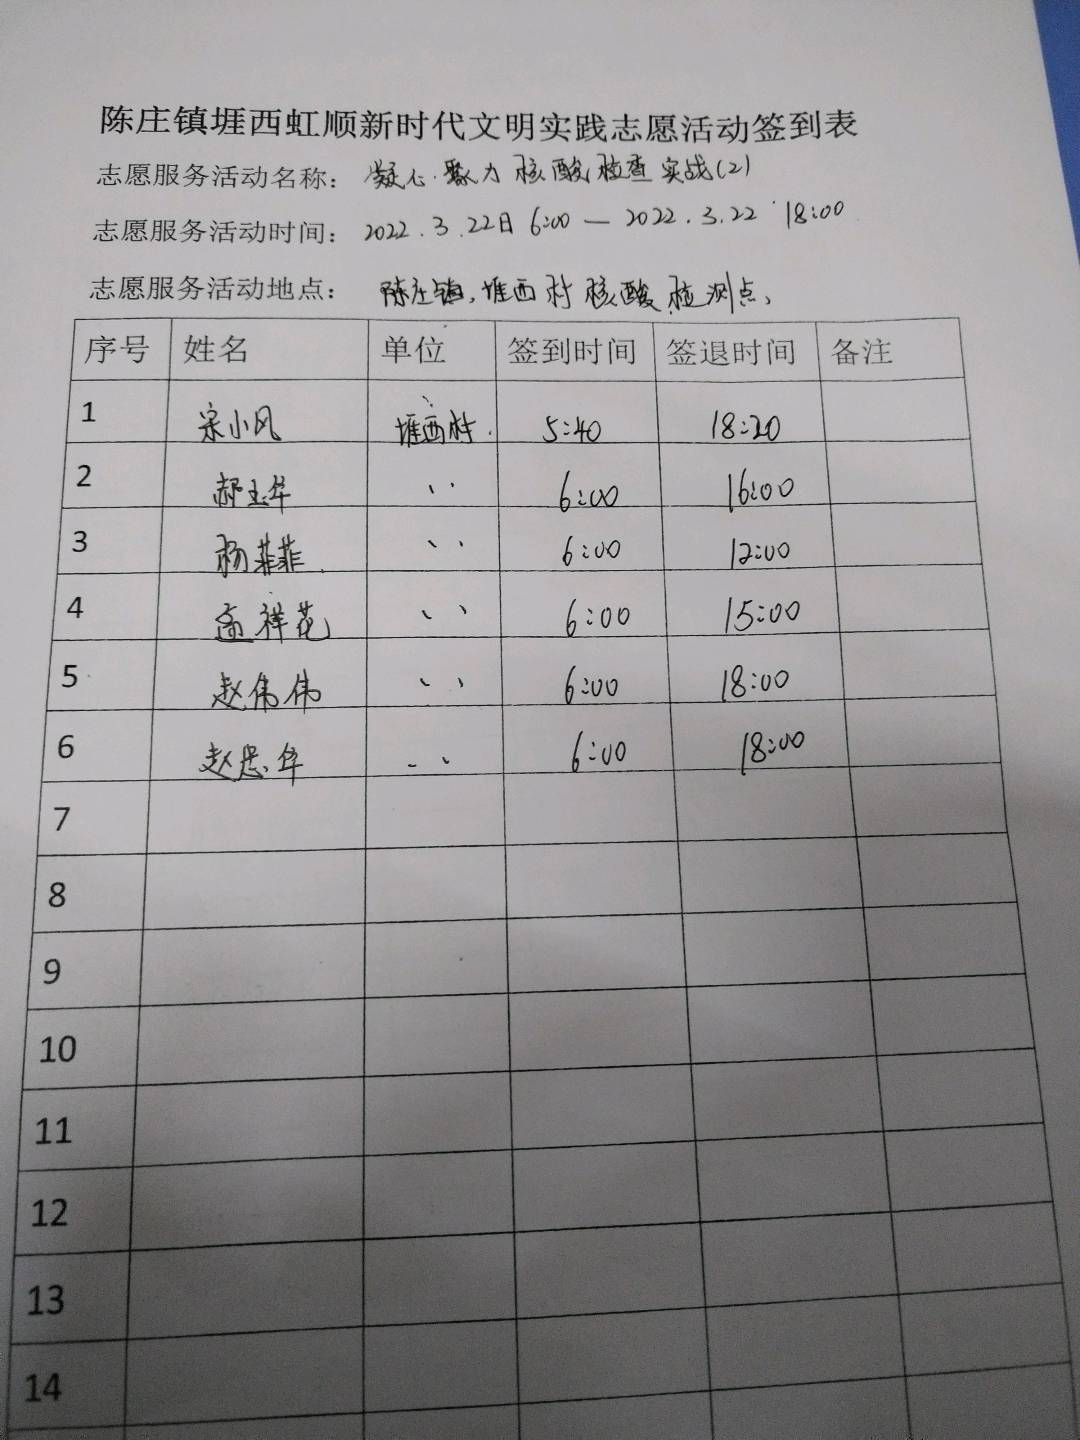 陈庄镇堐西虹顺新时代文明实践志愿活动签到表
志愿服务活动名称: 凝心·聚力 核酸检查实战(2)
志愿服务活动时间: 2022.3.22日 6:00 — 2022.3.22 18:00
志愿服务活动地点: 陈庄镇、堐西村核酸检测点、
序号 姓名 单位 签到时间 签退时间 备注
1 宋小风 堐西村. 5:40 18:20
2 郝玉华 、、 6:00 16:00
3 杨菲菲 、、 6:00 12:00
4 孟祥花 、、 6:00 15:00
5 赵伟伟 、、 6:00 18:00
6 赵思华 、、 6:00 18:00
7
8
9
10
11
12
13
14